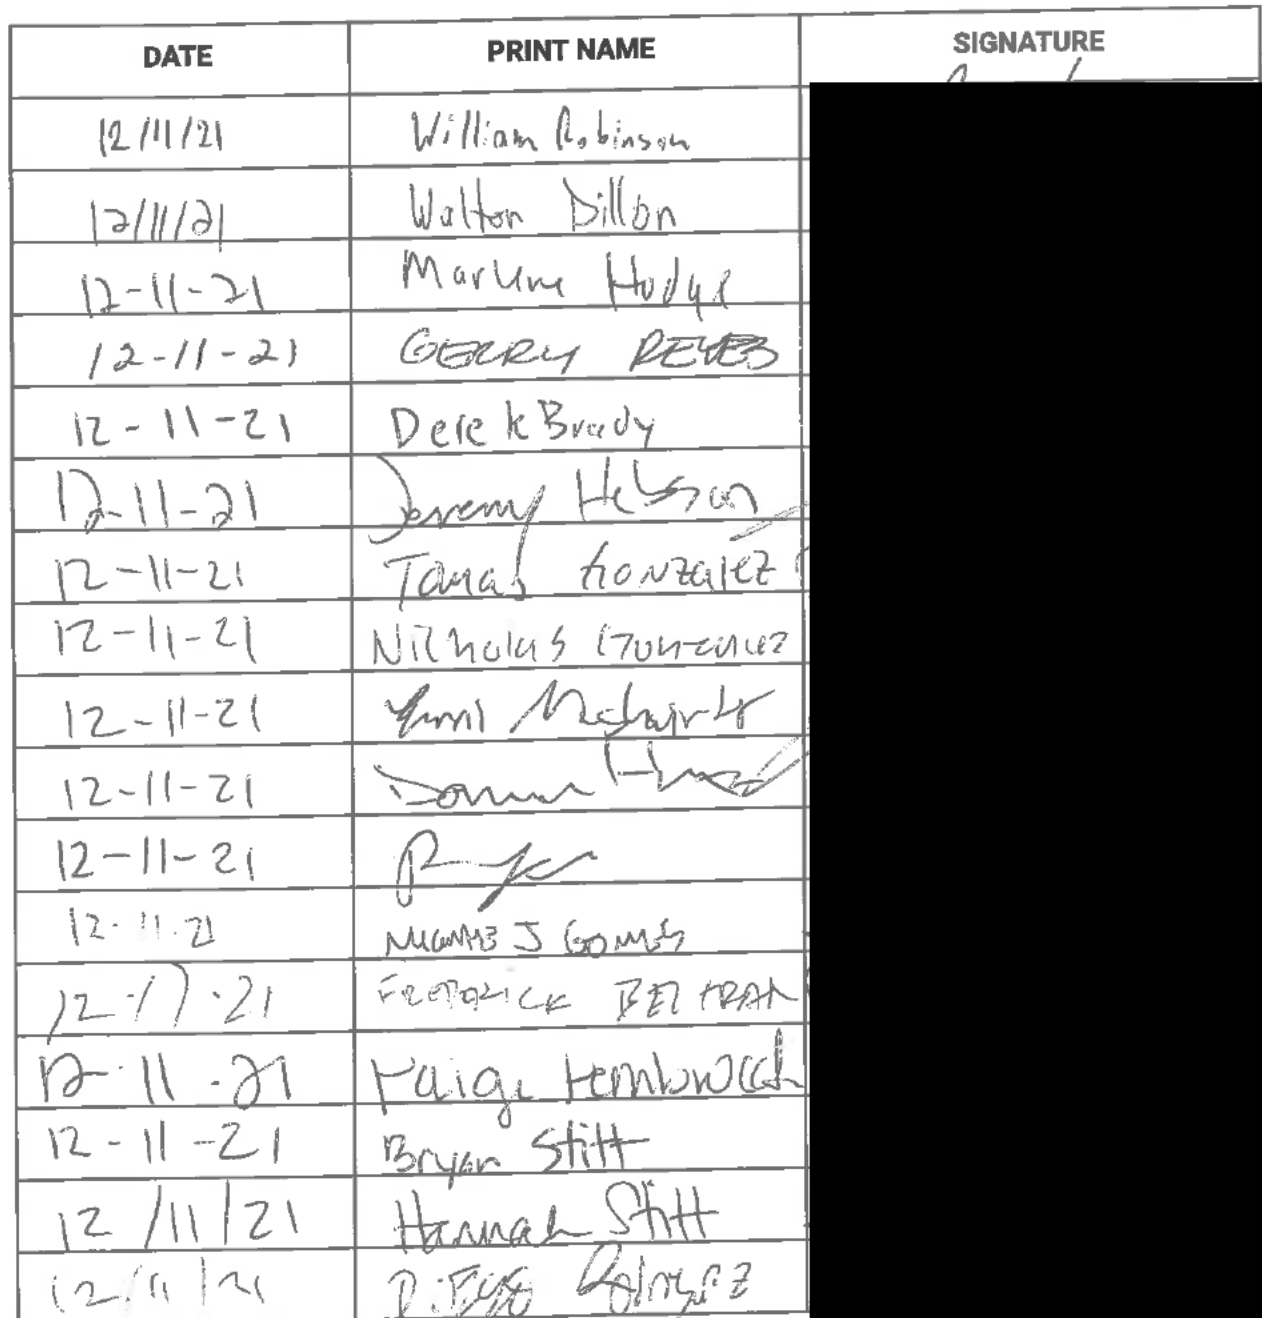 DATE PRINT NAME SIGNATURE
12/11/21 William Robinson
12/11/21 Walton Dillon
12-11-21 Marlene Hodge
12-11-21 GERRY REYES
12-11-21 Derek Brady
12-11-21 Jeremy Hebson
12-11-21 Tomas Gonzalez
12-11-21 Nicholas Gonzalez
12-11-21
12-11-21
12-11-21
12-11-21 J GOMES
12-11-21 FREDRICK BELTRAN
12-11-21 Paige
12-11-21 Bryan Stitt
12/11/21 Hannah Stitt
12/11/21 Diego